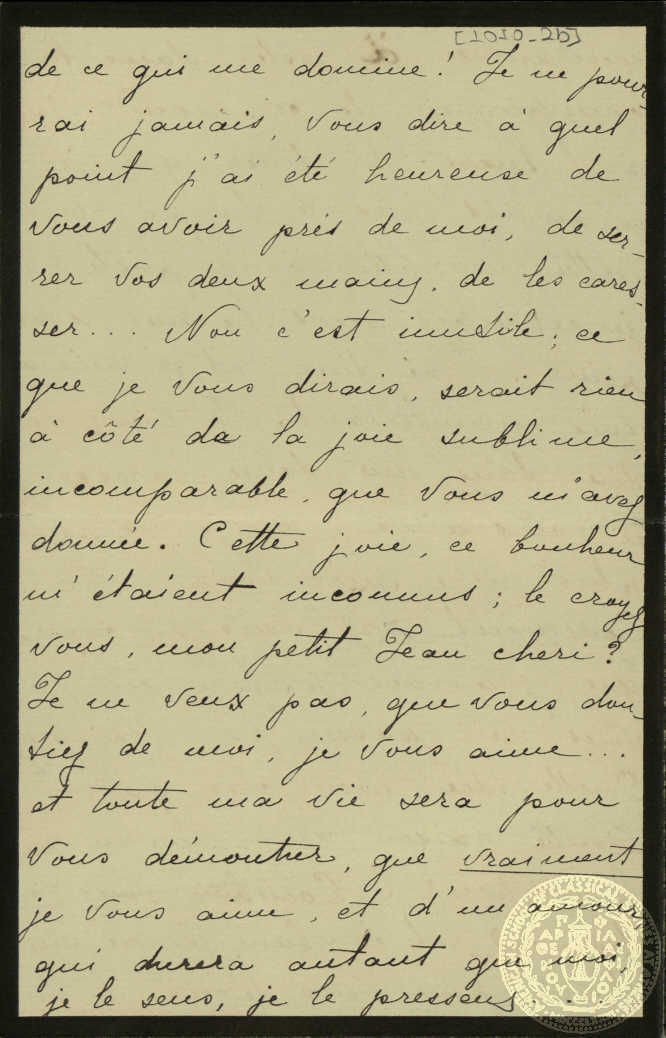 [1010_2b]
de ce qui me domine! Je ne pour-
rai jamais, vous dire à quel
point j'ai été heureuse de
vous avoir près de moi, de ser-
rer vos deux mains, de les cares-
ser... Non c'est inutile; ce
que je vous dirais, serait rien
à côté de la joie sublime,
incomparable, que vous m'avez
donnée. Cette joie, ce bonheur
m'étaient inconnus; le croyez
vous, mon petit Jean cheri?
Je ne veux pas, que vous dou-
tiez de moi, je vous aime...
et toute ma vie sera pour
vous démontrer, que vraiment
je vous aime, et d'un amour
qui durera autant que moi,
je le sens, je le pressens...